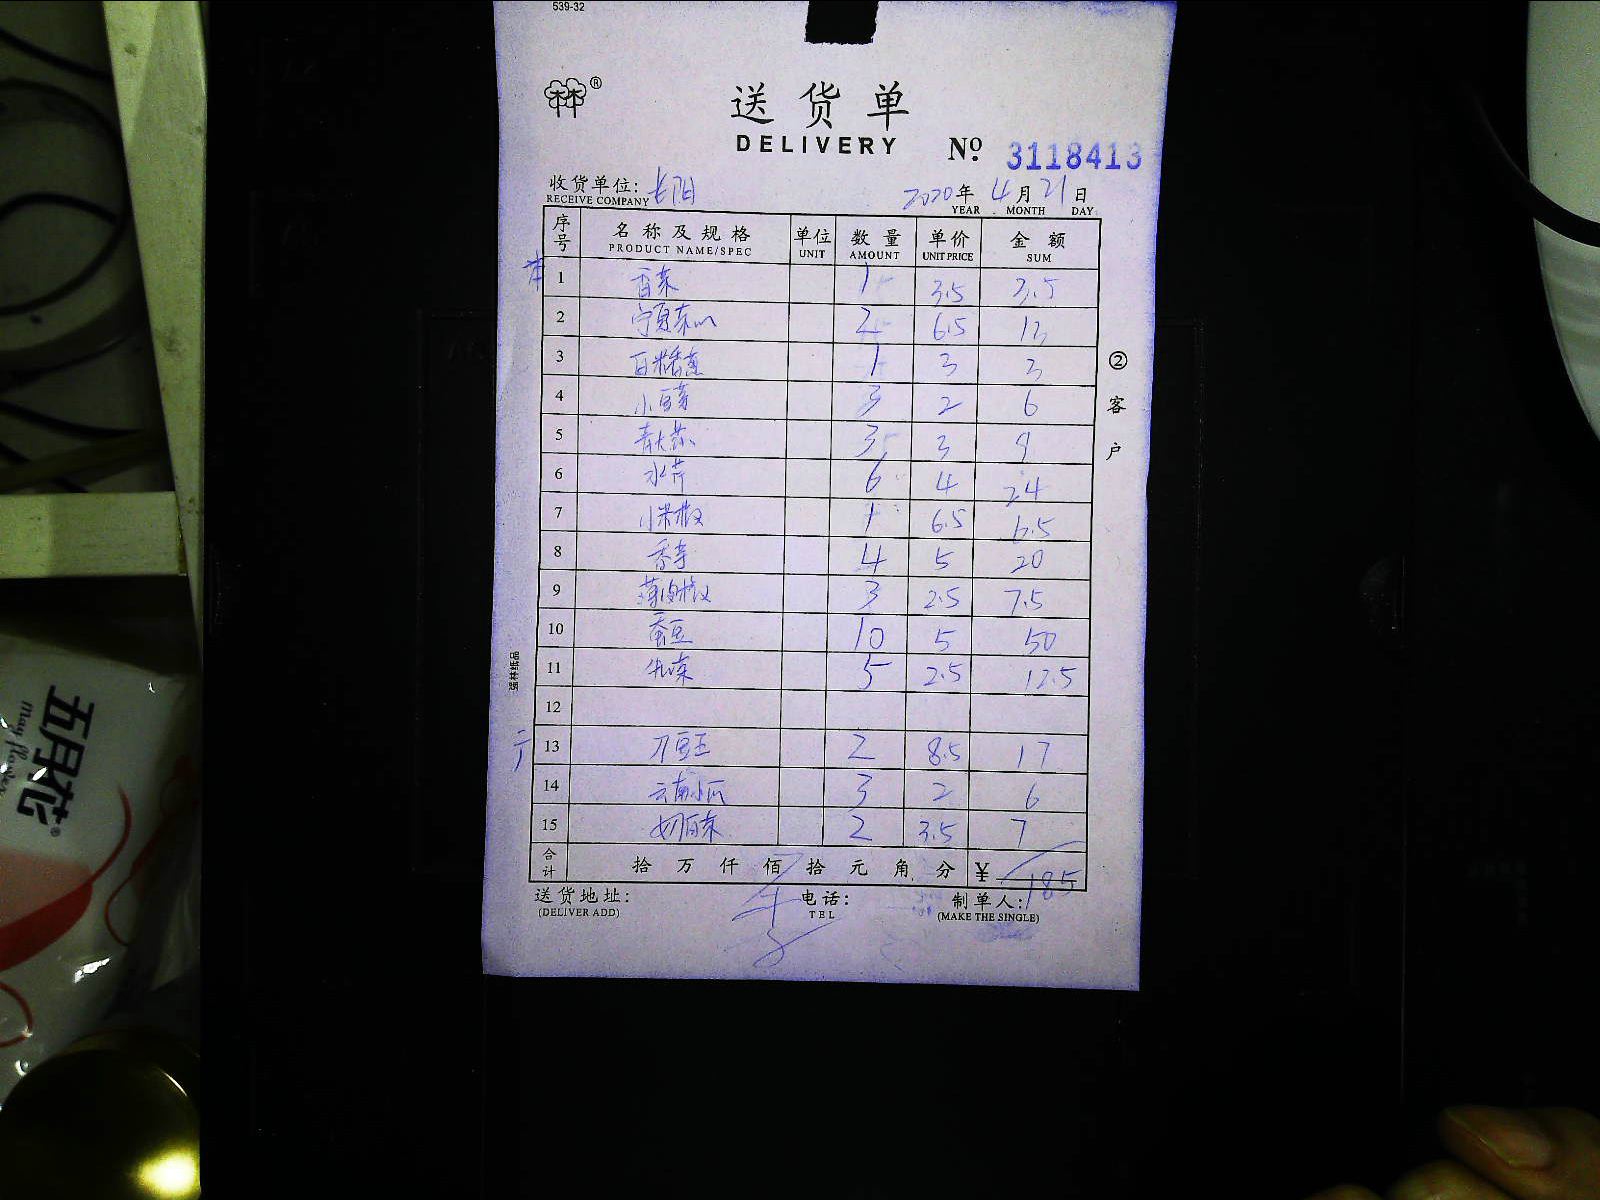 539-32
送货单
DELIVERY
Nº 3118413
收货单位: 长阳 2020年 4月 21日
RECEIVE COMPANY YEAR MONTH DAY
序号 名称及规格 单位 数量 单价 金额
PRODUCT NAME/SPEC UNIT AMOUNT UNIT PRICE SUM
1 香菜 1 3.5 3.5
2 宁夏菜心 2 6.5 13
3 1 3 3
4 小豆芽 3 2 6
5 3 3 9
6 水芹 6 4 24
7 小米椒 1 6.5 6.5
8 香芋 4 5 20
9 薄皮椒 3 2.5 7.5
10 蚕豆 10 5 50
11 生菜 5 2.5 12.5
12
13 刀豆王 2 8.5 17
14 云南小瓜 3 2 6
15 奶白菜 2 3.5 7
合计 拾万仟佰拾元角分 ¥ 185
送货地址: 电话: 制单人:
(DELIVER ADD) TEL (MAKE THE SINGLE)
② 客户
强林纸品
五月花
May flower